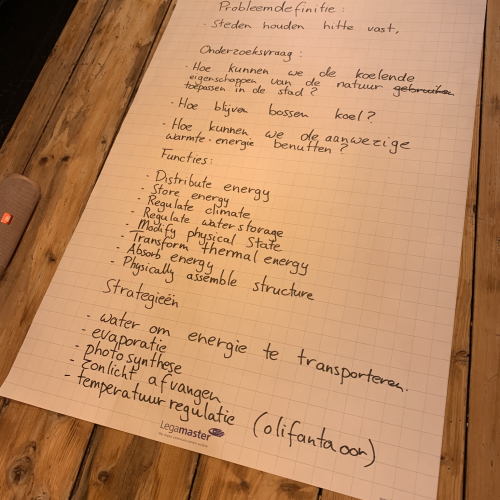 Probleemdefinitie:
- Steden houden hitte vast,
Onderzoeksvraag:
- Hoe kunnen we de koelende
eigenschappen van de natuur gebruiken
toepassen in de stad?
- Hoe blijven bossen koel?
- Hoe kunnen we de aanwezige
warmte-energie benutten?
Functies:
- Distribute energy
- Store energy
- Regulate climate
- Regulate water storage
- Modify physical State
- Transform thermal energy
- Absorb energy
- Physically assemble structure
Strategieën
- water om energie te transporteren.
- evaporatie
- photosynthese
- zonlicht afvangen
- temperatuur regulatie (olifantaoor)
Legamaster